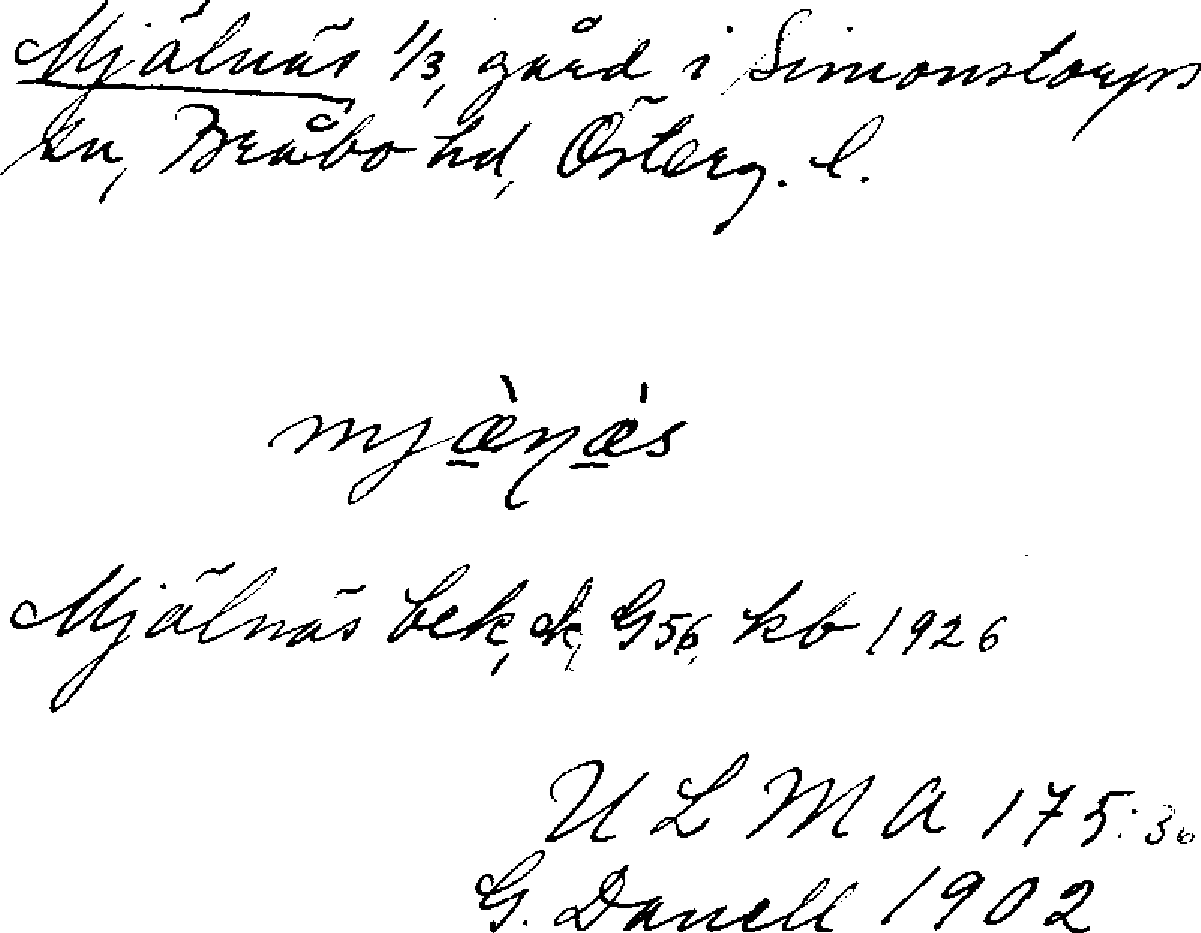 Mjälnäs 1/3, gård i Simonstorps
sn, Bråbo hd, Österg. l.
mjæ̠̀ŋǽ̠s
Mjälnäs bek, jk, G56, kb 1926
U L M A 175:36
G. Danell 1902